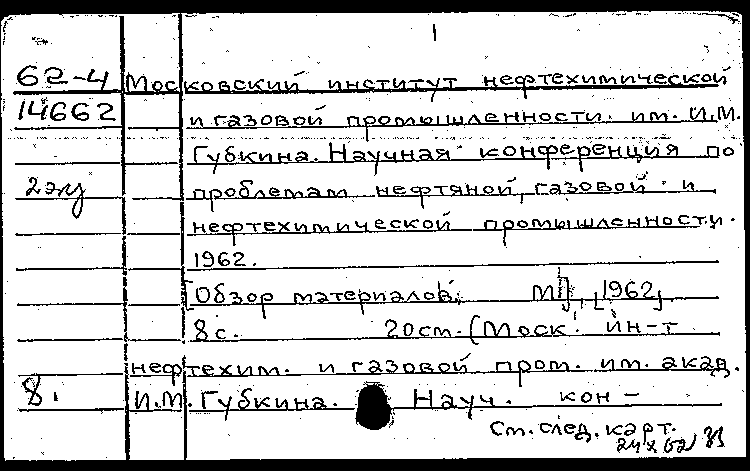 1
62-4 Московский институт нефтехимической
14662 и газовой промышленности им. И.М.
Губкина. Научная конференция по
2 экз проблемам нефтяной, газовой и
нефтехимической промышленности.
1962.
[Обзор материалов. М], [1962]
8 с. 20 см. (Моск. ин-т
нефтехим. и газовой пром. им. акад.
8. И.М. Губкина. Науч. кон-
См. след. карт.
24 X 62